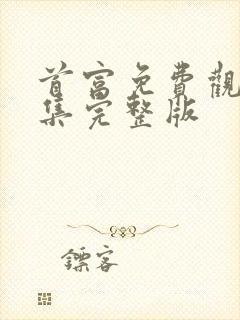 首富免費觀
集完整版
鏢客